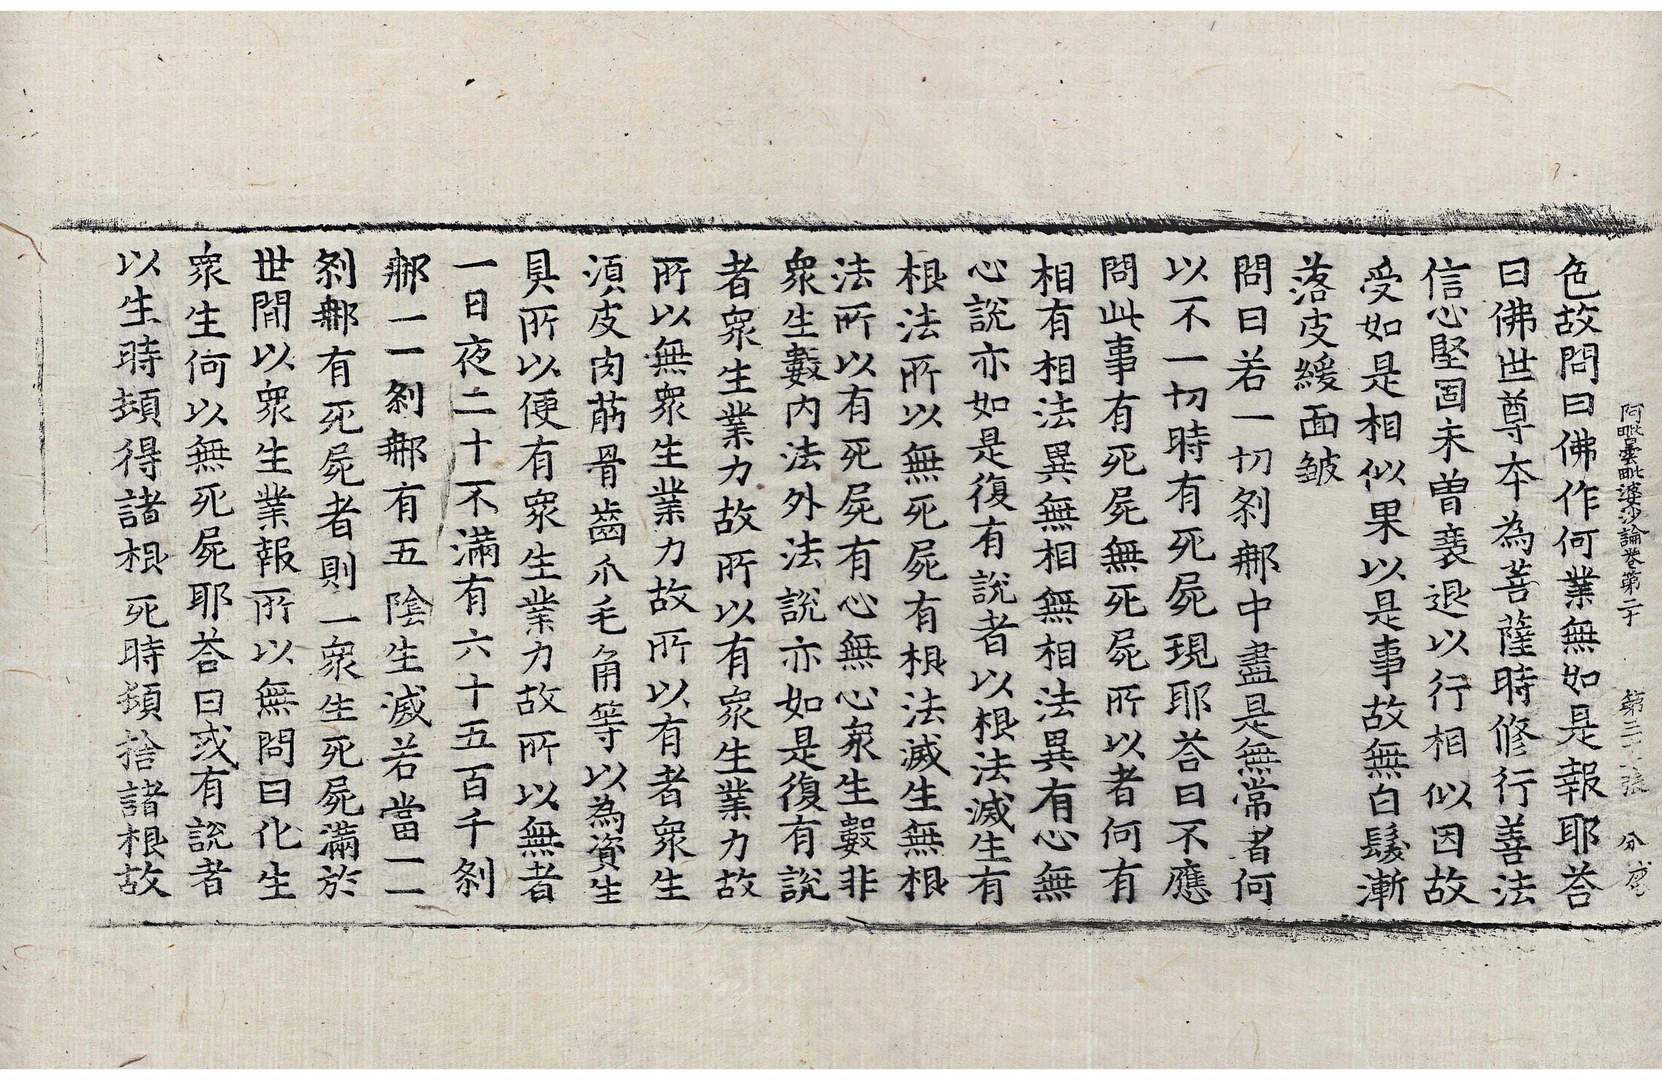 阿毗曇毗婆沙論卷第二十 第三 張 分 虞
色故問曰佛作何業無如是報耶荅
曰佛世尊本為菩薩時修行善法
信心堅固未曽衰退以行相似因故
受如是相似果以是事故無白髮漸
落皮緩面皺
問曰若一切剎那中盡是無常者何
以不一切時有死屍現耶荅曰不應
問此事有死屍無死屍所以者何有
相有相法異無相無相法異有心無
心說亦如是復有說者以根法滅生有
根法所以無死屍有根法滅生無根
法所以有死屍有心無心衆生數非
衆生數內法外法說亦如是復有說
者衆生業力故所以有衆生業力故
所以無衆生業力故所以有者衆生
須皮肉筋骨齒爪毛角等以為資生
具所以便有衆生業力故所以無者
一日夜二十不滿有六十五百千剎
那一一剎那有五陰生滅若當一一
剎那有死屍者則一衆生死屍滿於
世間以衆生業報所以無問曰化生
衆生何以無死屍耶荅曰或有說者
以生時頓得諸根死時頓捨諸根故